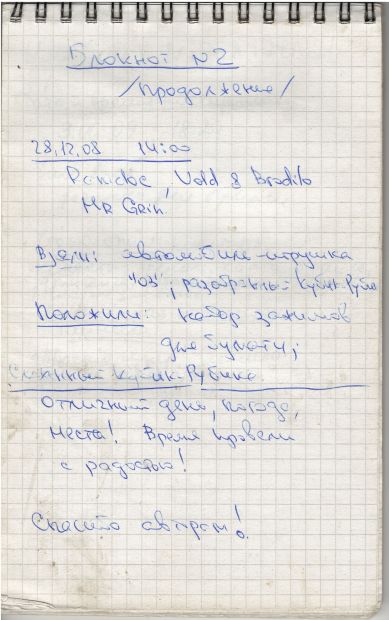 Блокнот N2
/Продолжение/
28.12.08 14:00
Vold & Bradilo
Mr Grin
Взяли: автомобиль-игрушка
"03"; разобранный кубик-Рубика
Положили: набор зажимов
для бумаги;
кубик-Рубика
Отличный день, погода,
места! Время провели
с радостью!
Спасибо авторам!